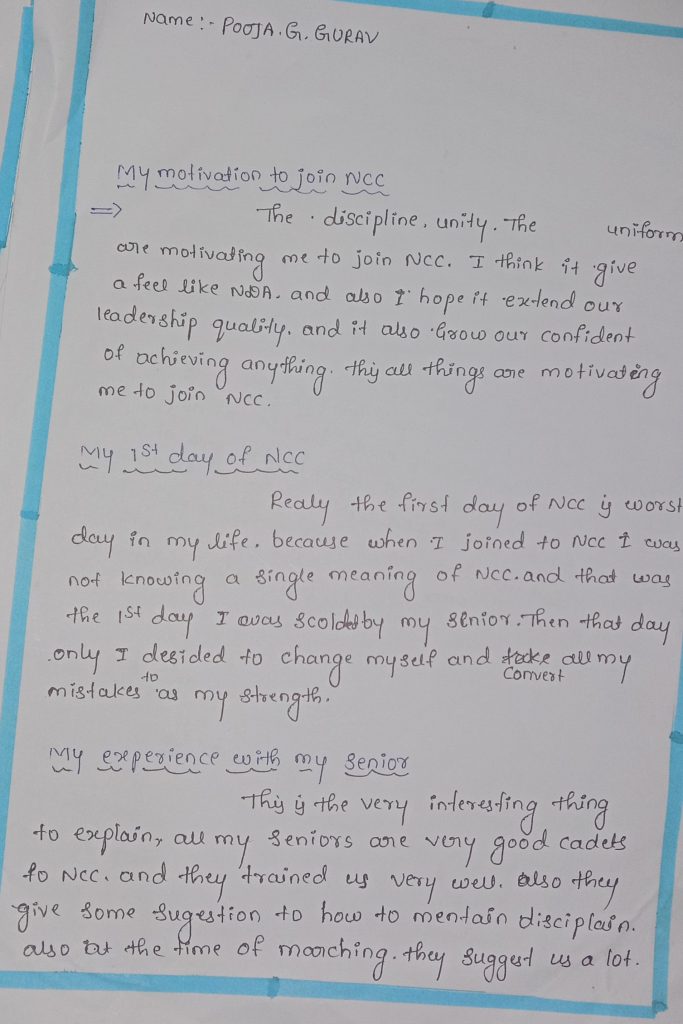 Name :- POOJA. G. GURAV
My motivation to join NCC
=> The . discipline, unity. The uniform
are motivating me to join NCC. I think it give
a feel like NDA. and also I hope it extend our
leadership quality. and it also Grow our confident
of achieving anything. this all things are motivating
me to join NCC.
My 1st day of NCC
Realy the first day of NCC is worst
day in my life. because when I joined to NCC I was
not knowing a single meaning of NCC. and that was
the 1st day I was scolded by my senior. Then that day
only I desided to change myself and all my
to convert
mistakes as my strength.
My experience with my senior
This is the very interesting thing
to explain, all my seniors are very good cadets
to NCC. and they trained us very well. also they
give some sugestion to how to mentain disciplain.
also at the time of marching. they suggest us a lot.